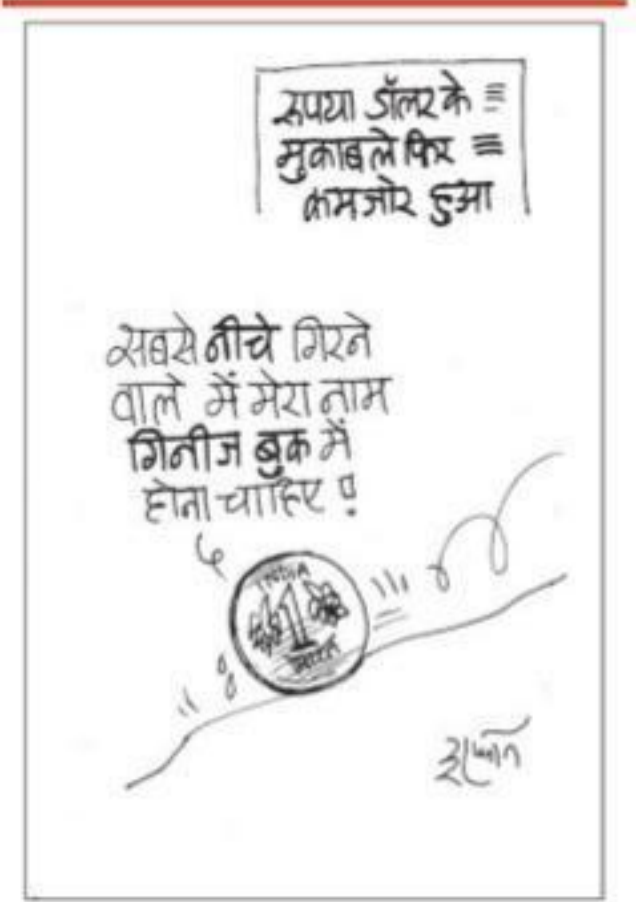 रुपया डॉलर के
मुकाबले फिर
कमजोर हुआ
सबसे नीचे गिरने
वाले में मेरा नाम
गिनीज बुक में
होना चाहिए !
INDIA
1
भारत